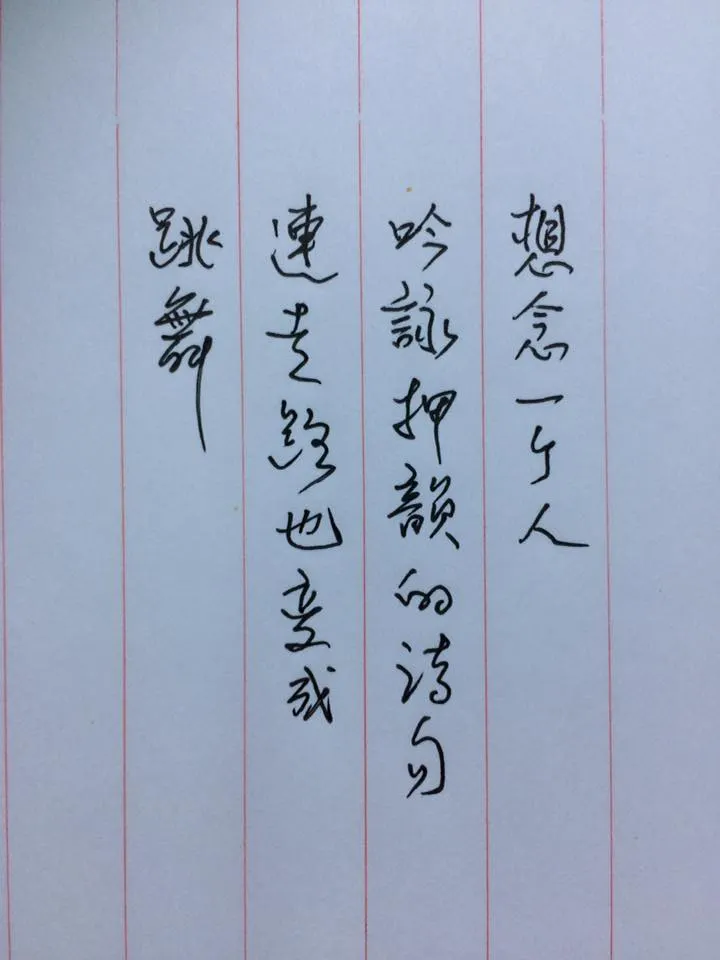 想念一个人
吟詠押韻的詩句
連走路也变成
跳舞